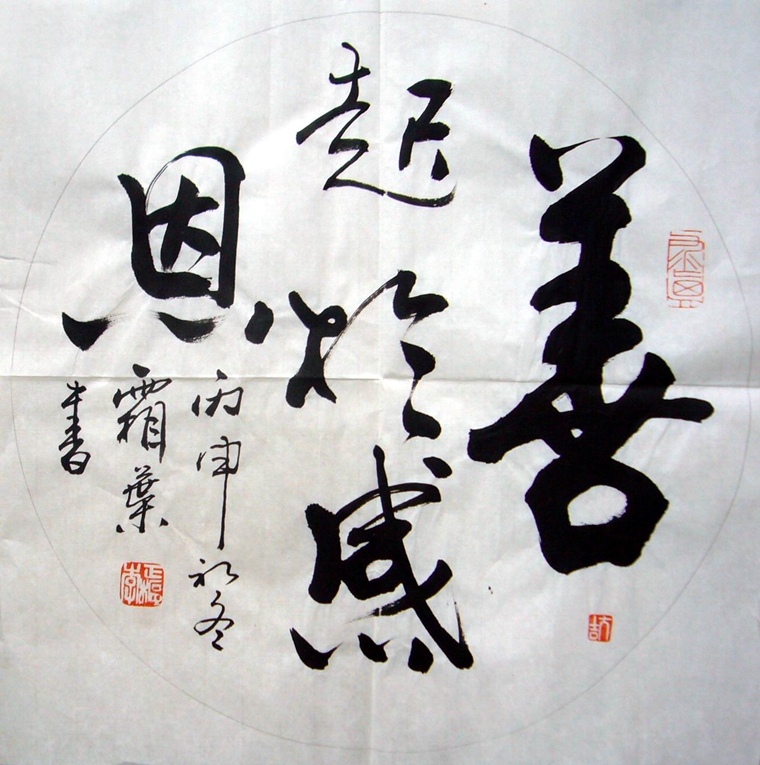 善
起於感
恩
丙申初冬
霜葉
書